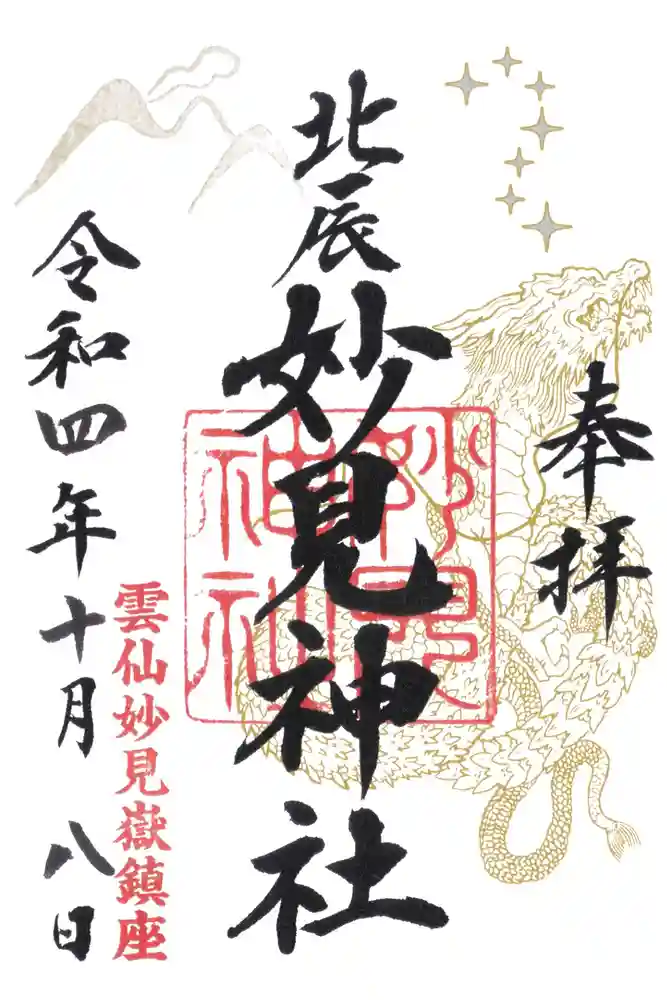 奉拝
北辰
妙見神社
妙見
神社
雲仙妙見嶽鎮座
令和四年十月八日